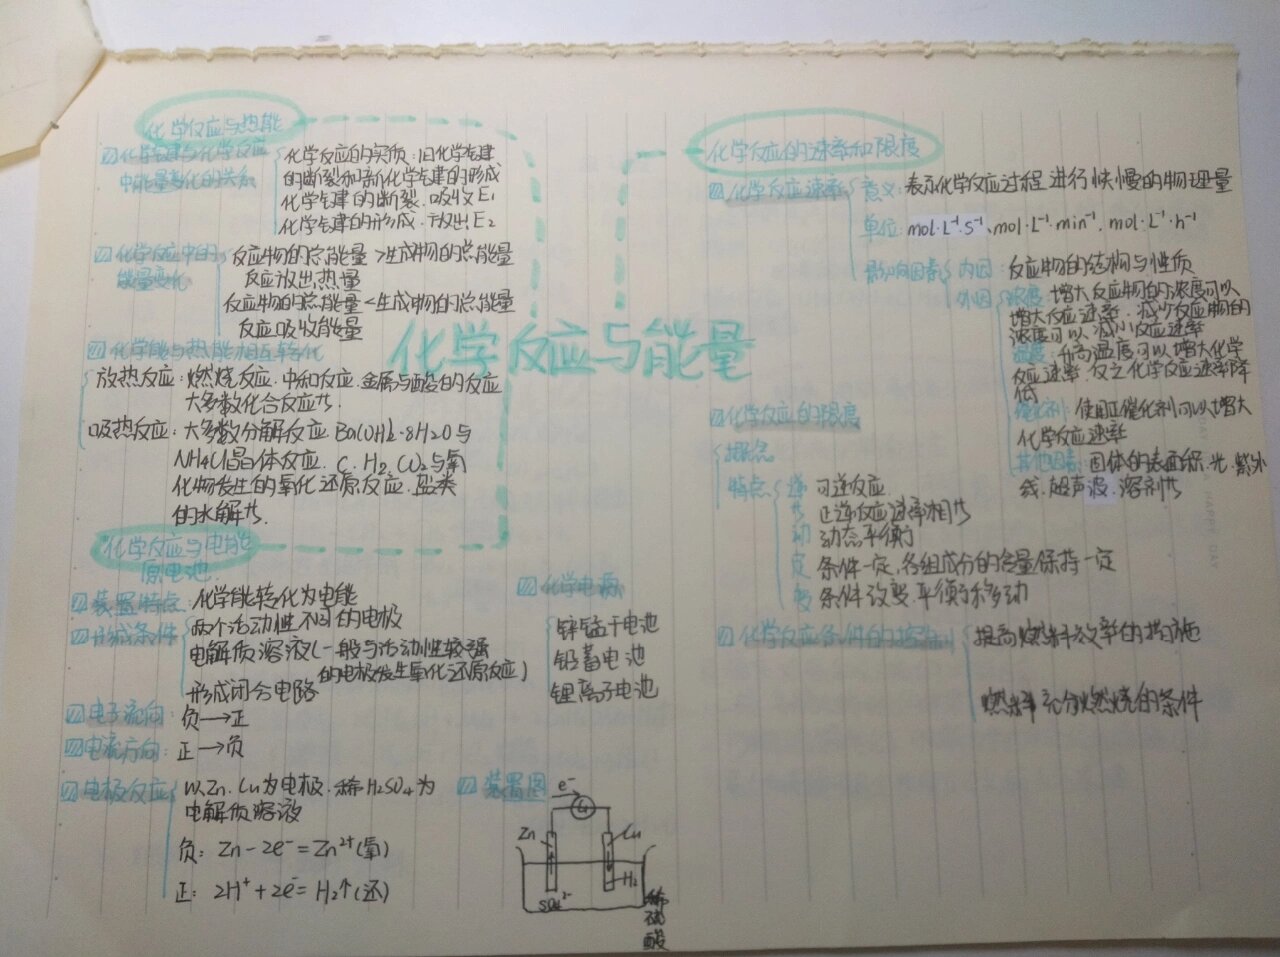 化学反应与能量
化学反应与热能
化学键与化学反应
中能量变化的关系
化学反应的实质：旧化学键
的断裂和新化学键的形成
化学键的断裂．吸收E₁
化学键的形成．放出E₂
化学反应中的
能量变化
反应物的总能量>生成物的总能量
反应放出热量
反应物的总能量<生成物的总能量
反应吸收能量
化学能与热能相互转化
放热反应：燃烧反应．中和反应．金属与酸的反应
大多数化合反应等．
吸热反应：大多数分解反应．Ba(OH)₂·8H₂O与
NH₄Cl晶体反应．C、H₂、CO₂与氧
化物发生的氧化还原反应．盐类
的水解等．
化学反应与电能
原电池．
装置特点：化学能转化为电能
形成条件
两个活动性不同的电极
电解质溶液(一般与活动性较强
的电极发生氧化还原反应)
形成闭合电路
电子流向：负→正
电流方向：正→负
电极反应
以Zn．Cu为电极．稀H₂SO₄为
电解质溶液
负：Zn－2e⁻=Zn²⁺(氧)
正：2H⁺+2e⁻=H₂↑(还)
化学电源
锌锰干电池
铅蓄电池
锂离子电池
装置图
e⁻
Zn
Cu
H₂
SO₄²⁻
稀硫酸
化学反应的速率和限度
化学反应速率
意义：表示化学反应过程进行快慢的物理量
单位：mol·L⁻¹·s⁻¹、mol·L⁻¹·min⁻¹、mol·L⁻¹·h⁻¹
影响因素
内因：反应物的结构与性质
外因
浓度：增大反应物的浓度可以
增大反应速率．减少反应物的
浓度可以减小反应速率
温度：升高温度可以增大化学
反应速率．反之化学反应速率降
低
催化剂：使用正催化剂可以增大
化学反应速率
其他因素：固体的表面积．光．紫外
线．超声波．溶剂等
化学反应的限度
概念
特点
逆 可逆反应
等 正逆反应速率相等
动 动态平衡
定 条件一定，各组成分的含量保持一定
变 条件改变．平衡移动
化学反应条件的控制
提高燃料效率的措施
燃料充分燃烧的条件
A HAPPY DAY